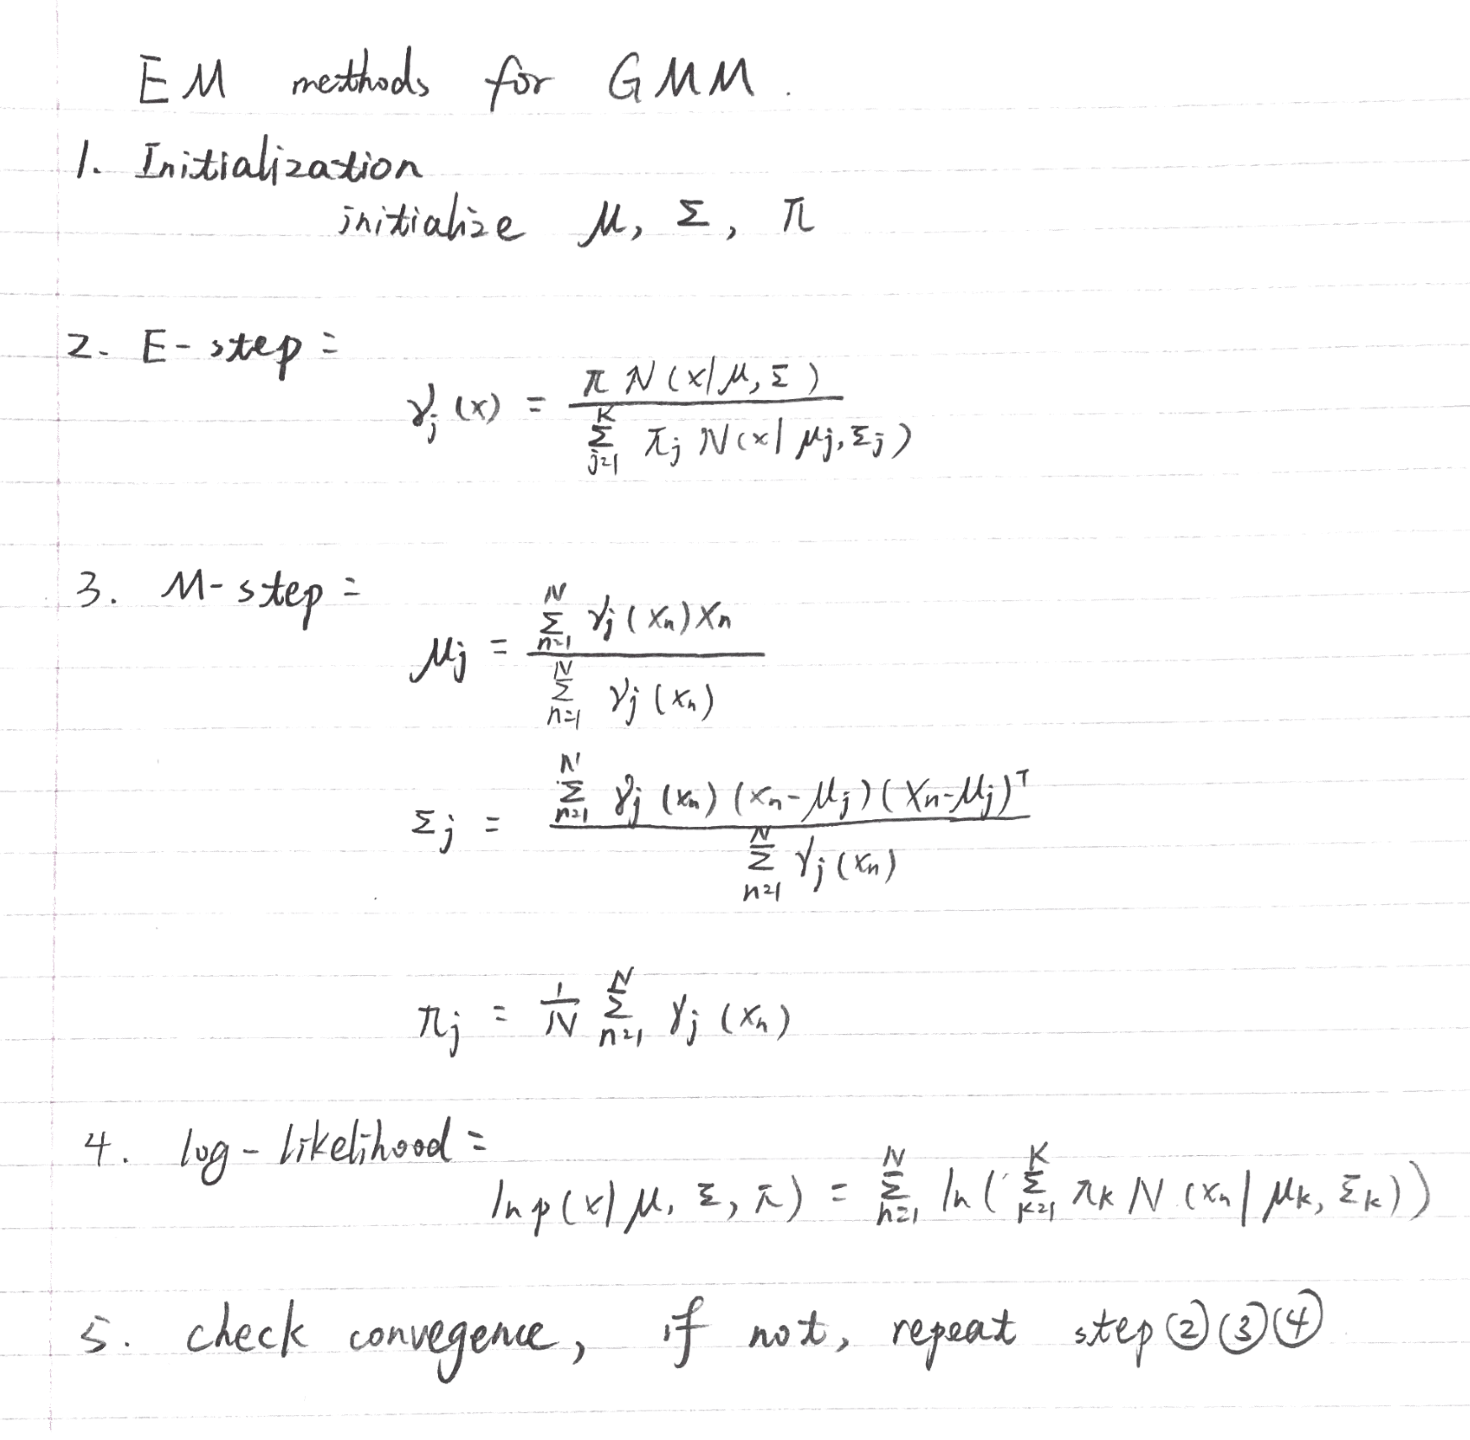 EM methods for GMM.
1. Initialization
initialize μ, Σ, π
2. E-step:
γj(x) = π N(x|μ, Σ) / Σ_{j=1}^{K} πj N(x|μj, Σj)
3. M-step:
μj = Σ_{n=1}^{N} γj(xn)xn / Σ_{n=1}^{N} γj(xn)
Σj = Σ_{n=1}^{N} γj(xn)(xn-μj)(xn-μj)^T / Σ_{n=1}^{N} γj(xn)
πj = 1/N Σ_{n=1}^{N} γj(xn)
4. log-likelihood:
ln p(x|μ, Σ, π) = Σ_{n=1}^{N} ln(Σ_{k=1}^{K} πk N(xn|μk, Σk))
5. check convegence, if not, repeat step ②③④